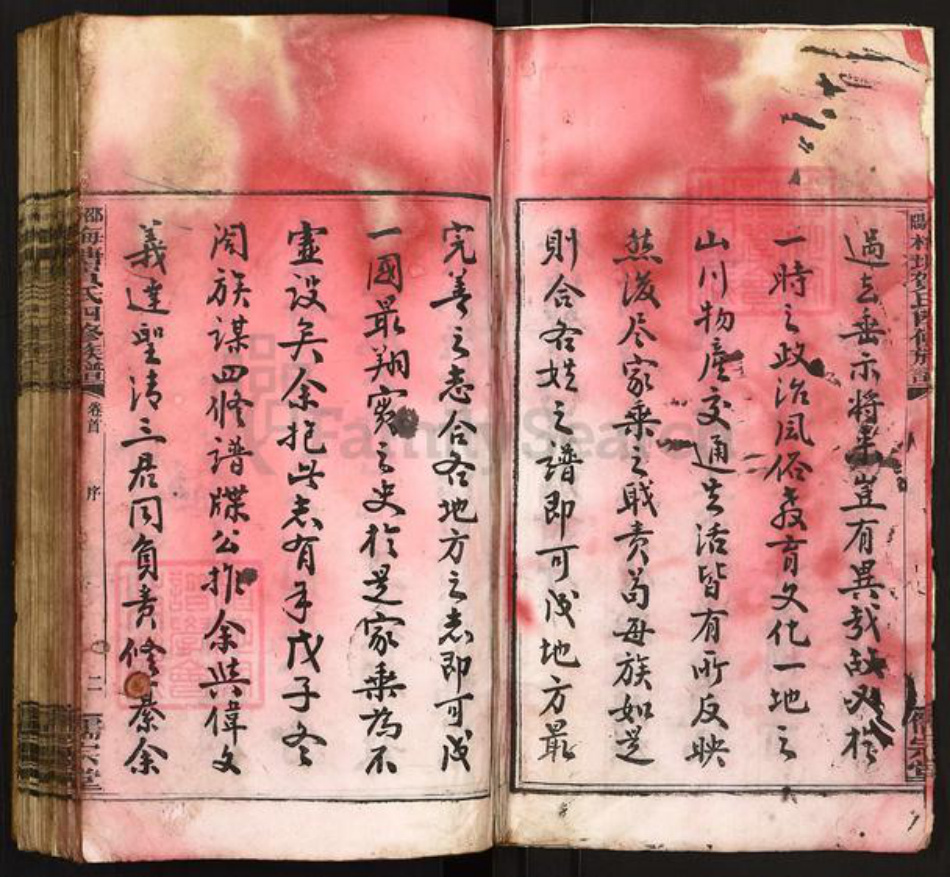 過去垂示將來豈有異哉故必於
一時之政治風俗教育文化一地之
山川物產交通生活皆有所反映
然後尽家乘之戝責苟每族如是
則合各姓之譜即可成地方最
完善之志合各地方之志即可成
一國最翔實之史於是家乘為不
虛設矣余抱此志有年戊子冬
闔族謀四修譜牒公推余與偉文
義達聖清三君同負責修纂余
氏四修族譜
卷首
序
二
FamilySearch